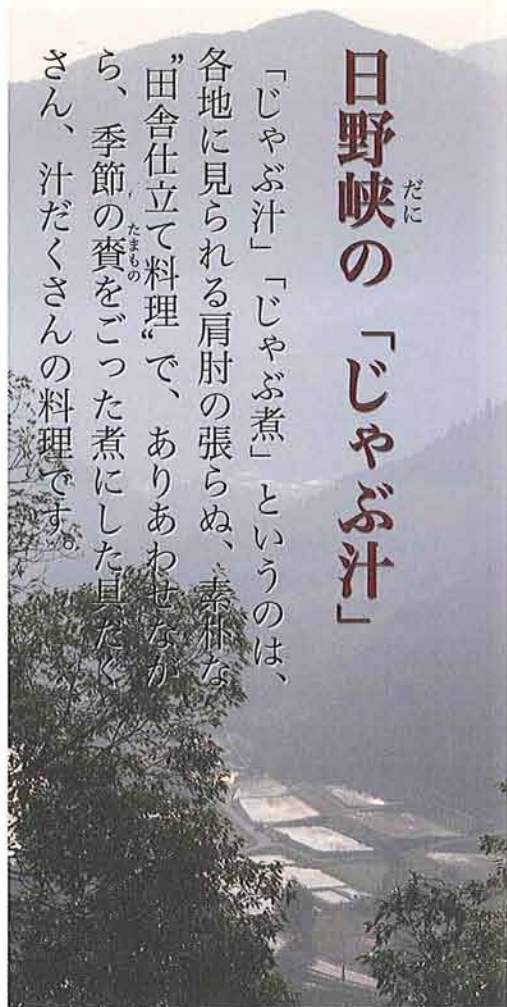 日野峡の「じゃぶ汁」
だに
「じゃぶ汁」「じゃぶ煮」というのは、
各地に見られる肩肘の張らぬ、素朴な
”田舎仕立て料理“で、ありあわせなが
ら、季節の賚をごった煮にした具だく
たまもの
さん、汁だくさんの料理です。